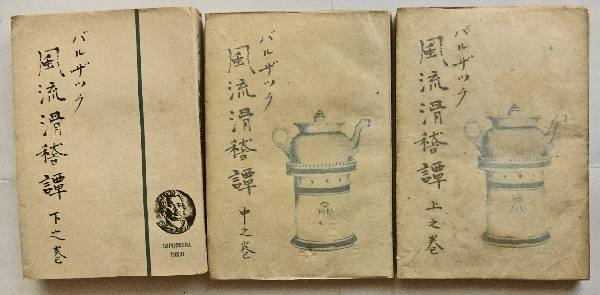 バルザック
風流滑稽譚
下之巻
TOKIO
バルザック
風流滑稽譚
中之巻
バルザック
風流滑稽譚
上之巻